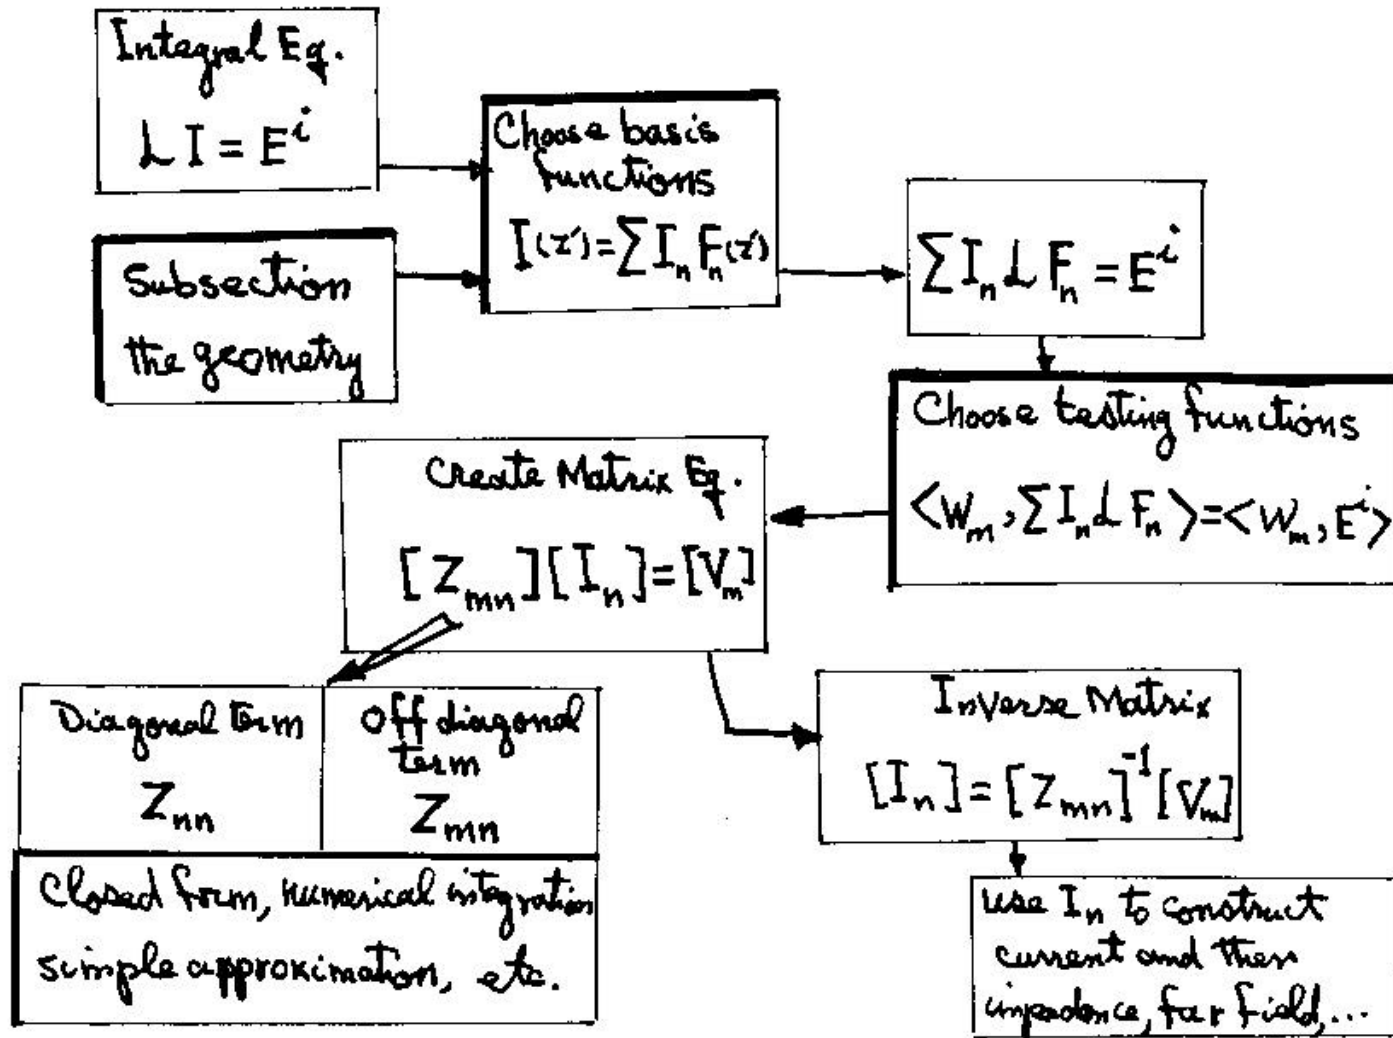 Integral Eq.
L I = E^i
Subsection
the geometry
Choose basis
functions
I(z') = ∑ I_n F_n(z')
∑ I_n L F_n = E^i
Choose testing functions
<W_m, ∑ I_n L F_n> = <W_m, E^i>
Create Matrix Eq.
[Z_mn][I_n] = [V_m]
Diagonal term
Z_nn
Off diagonal
term
Z_mn
Closed form, numerical integration
simple approximation, etc.
Inverse Matrix
[I_n] = [Z_mn]^-1 [V_m]
use I_n to construct
current and then
impedance, far field,...